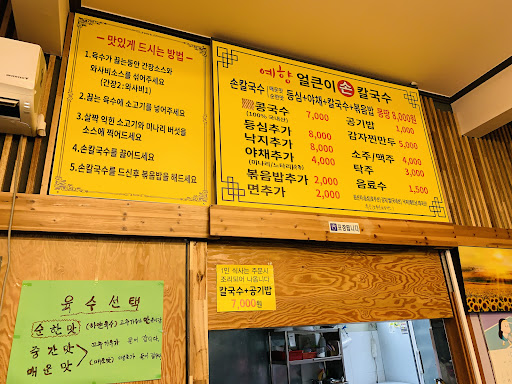 - 맛있게 드시는 방법 -
1.육수가 끓는동안 간장소스와
와사비소스를 섞어주세요
(간장2:와사비1)
2.끓는 육수에 소고기를 넣어주세요
3.살짝 익힌 소고기와 미나리 버섯을
소스에 찍어드세요
4.손칼국수를 끓여드세요
5.손칼국수를 드신후 볶음밥을 해드세요
예향 얼큰이 손 칼국수
손칼국수 매운맛 순한맛 등심+야채+칼국수+볶음밥
콩국수 7,000
(100% 국내산)
등심추가 8,000
낙지추가 8,000
야채추가 4,000
(미나리/느타리버섯)
볶음밥추가 2,000
면추가 2,000
공기밥 1,000
감자찐만두 5,000
소주/맥주 4,000
탁주 3,000
음료수 1,500
포장됩니다
1인 식사는 주문시
조리되어 나옵니다
칼국수+공기밥
7,000원
육수선택
순한맛
중간맛
매운맛